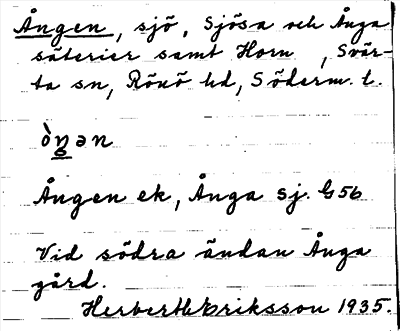 Ången, sjö, Sjösa och Ånga
säterier samt Horn, Svär-
ta sn, Rönö hd, Söderm. l.
òŋan
Ången ek, Ånga sj. G 56
Vid södra ändan Ånga
gård.
Herbert Eriksson 1935.